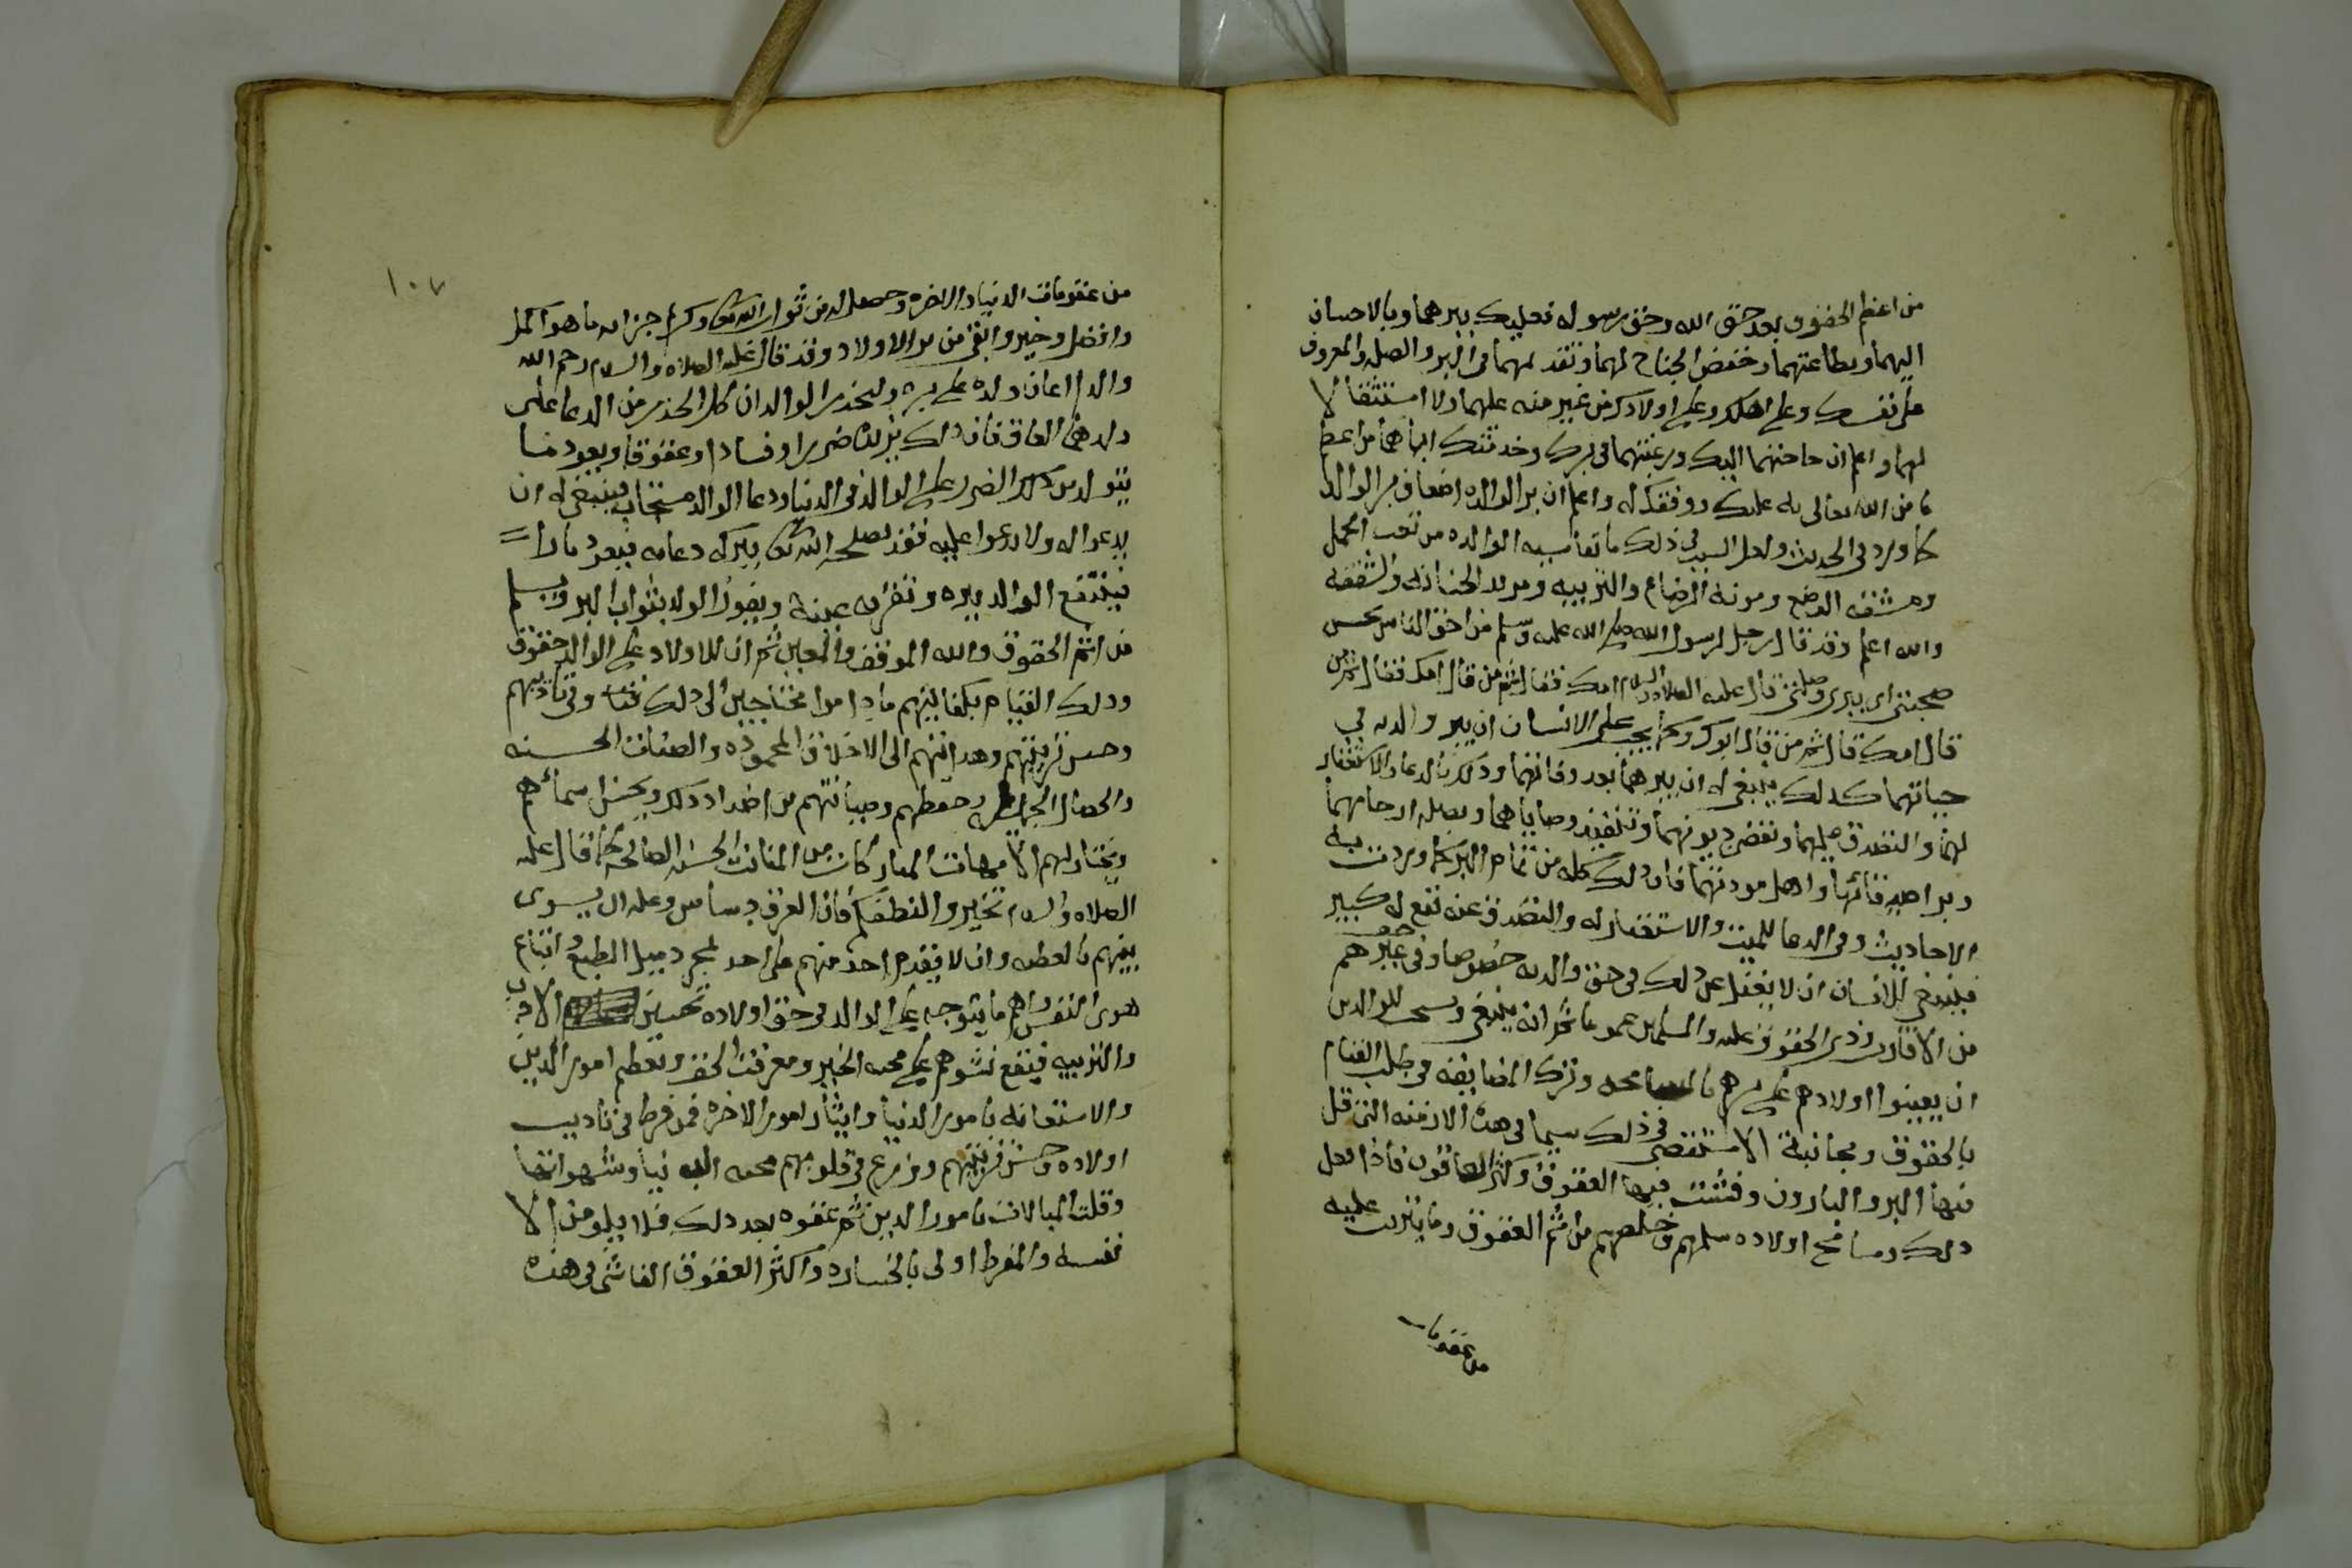 من اعظم الحقوق بعد حق الله وحق رسوله فعليك ببرهما وبالاحسان
اليهما وبطاعتهما وخفض الجناح لهما وتقديمهما في البر والصله والمعروف
على نفسك وعلى اهلك وعلى اولادك من غير منه عليهما ولا استثقالا
لهما واعلم ان حاجتهما اليك ورغبتهما في برك وخدمتك اياهما من اعظم
ما من الله تعالى به عليك ووفقك له واعلم ان بر الوالده اضعاف بر الوالد
كما ورد في الحديث ولعل السبب في ذلك ما تقاسيه الوالده من تعب الحمل
ومشقه الوضع ومونة الرضاع والتربيه ومزيد الحنانه والشفقه
والله اعلم وقد قال رجل لرسول الله صلى الله عليه وسلم من احق الناس بحسن
صحبتي اي ببري وصلتي قال عليه الصلاه والسلام امك فقال ثم من قال امك فقال ثم من
قال امك قال ثم من قال ابوك وكما يجب على الانسان ان يبر والديه في
حياتهما كذلك ينبغي له ان يبرهما بعد وفاتهما وذلك بالدعا والاستغفار
لهما والتصدق عليهما وبقضى ديونهما وتنفيذ وصاياهما وبصله ارحامهما
وبر اصدقائهما واهل مودتهما فان ذلك كله من تمام البر كما وردت به
الاحاديث وفي الدعا للميت والاستغفار له والتصدق عنه نفع له كبير
فينبغي للانسان ان لا يغفل عن ذلك في حق والديه خصوصا وفي حق غيرهم
من الاقارب وذوي الحقوق عليه والمسلمين عموما ثم انه ينبغي ويستحب للوالدين
ان يعينوا اولادهم على برهم بالمسامحه وترك المضايقه في طلب القيام
بالحقوق ومجانبة الاستقصى في ذلك سيما في هذه الازمنه التي قل
فيها البر والبارون وفشت فيها العقوق وكثر العاقون فاذا فعل
ذلك وسامح اولاده سلمهم وخلصهم من اثم العقوق وما يترتب عليه
من عقوبات
١٠٧
من عقوبات الدنيا والاخره وحصل له من ثواب الله تعالى وكريم جزايه ما هو اكمل
وافضل وخير وابقى من بر الاولاد وقد قال عليه الصلاه والسلام رحم الله
والدا اعان ولده على بره وليحذر الوالدان كل الحذر من الدعا على
ولدهما العاق فان ذلك يزيده ضررا وفسادا وعقوقا ويعود ما
يتولد من ذلك الضرر على الوالد في الدنيا ودعا الوالد مستجاب فينبغي له ان
يدعو له ولا يدعوا عليه فقد يصلحه الله تعالى ببركه دعايه فيعود بارا
فينتفع الوالد ببره وتقر به عينه ويفوز الولد بثواب البر ويسلم
من اثم العقوق والله الموفق والمعين ثم ان للاولاد على الوالد حقوق
وذلك القيام بكفايتهم ما داموا محتاجين الى ذلك وفي تاديبهم
وحسن تربيتهم وهدايتهم الى الاخلاق المحموده والصفات الحسنه
والخصال الجميله وحفظهم وصيانتهم من اضداد ذلك ويحسن اسمائهم
ويختار لهم الامهات المباركات من المنابت الحسنه الصالحه كما قال عليه
الصلاه والسلام تخيروا لنطفكم فان العرق دساس وعليه ان يسوى
بينهم بالعطيه وان لا يقدم احد منهم على احد لمجرد ميل الطبع واتباع
هوى النفس واهم ما يتوجه على الوالد في حق اولاده تحسين الادب
والتربيه فيقع نشوهم على محبه الخير ومعرفت الحق وتعظيم امور الدين
والاستهانه بامور الدنيا وايثار امور الاخره فمن فرط في تاديب
اولاده وحسن تربيتهم وزرع في قلوبهم محبه الدنيا وشهواتها
وقلت المبالات بامور الدين ثم عقوه بعد ذلك فلا يلومن الا
نفسه والمفرط اولى بالخساره واكثر العقوق الفاشي في هذه